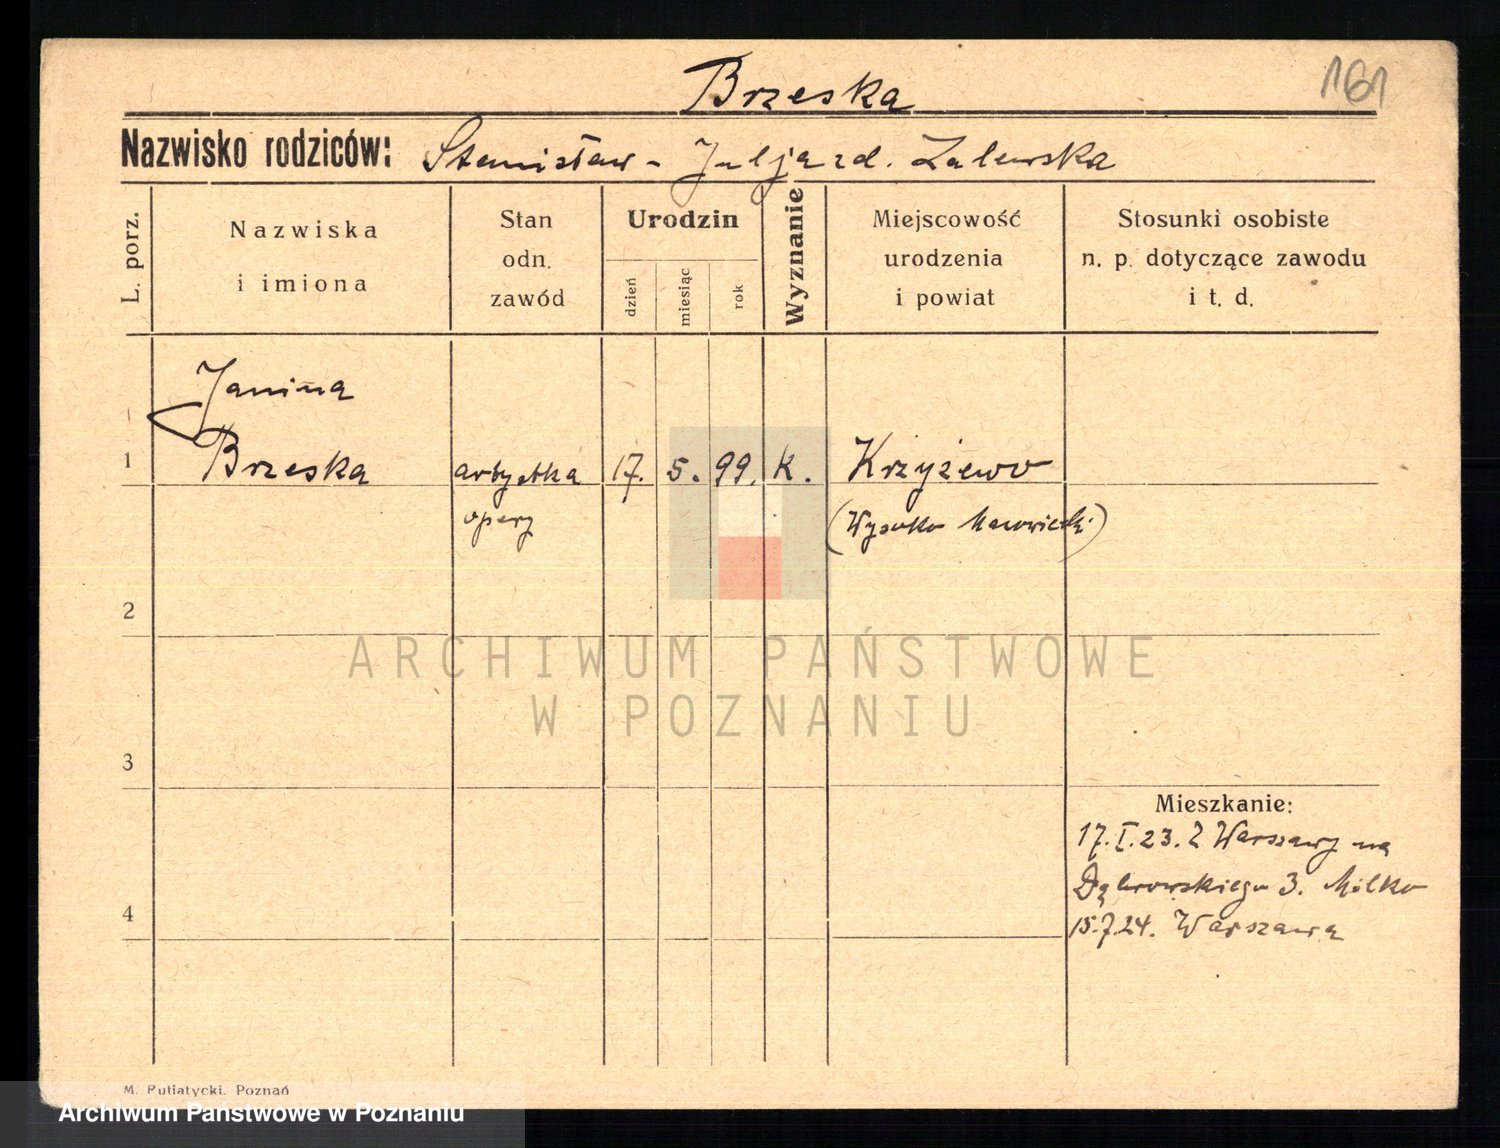 161
Brzeska
Nazwisko rodziców: Stanisław - Julja zd. Zalewska
L. porz.
Nazwiska
i imiona
Stan
odn.
zawód
Urodzin
dzień
miesiąc
rok
Wyznanie
Miejscowość
urodzenia
i powiat
Stosunki osobiste
n. p. dotyczące zawodu
i t. d.
Janina
1 Brzeska artystka 17. 5. 99. k. Krzyżewo
opery (Wysoko Mazowiecki)
2
ARCHIWUM PAŃSTWOWE
W POZNANIU
3
Mieszkanie:
17.I.23. Z Warszawy na
Dąbrowskiego 3. Milko
4
15.7.24. Warszawa
M. Putiatycki. Poznań
Archiwum Państwowe w Poznaniu